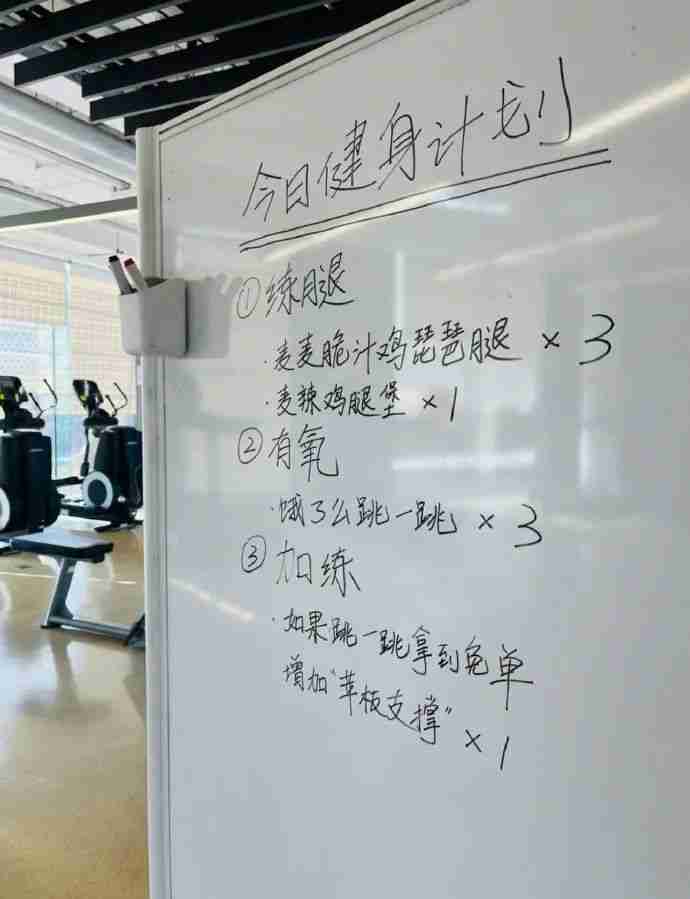 今日健身计划
①练腿
·麦麦脆汁鸡琵琶腿 × 3
·麦辣鸡腿堡 × 1
②有氧
·饿了么跳一跳 × 3
③加练
·如果跳一跳拿到免单
增加"苹板支撑" × 1